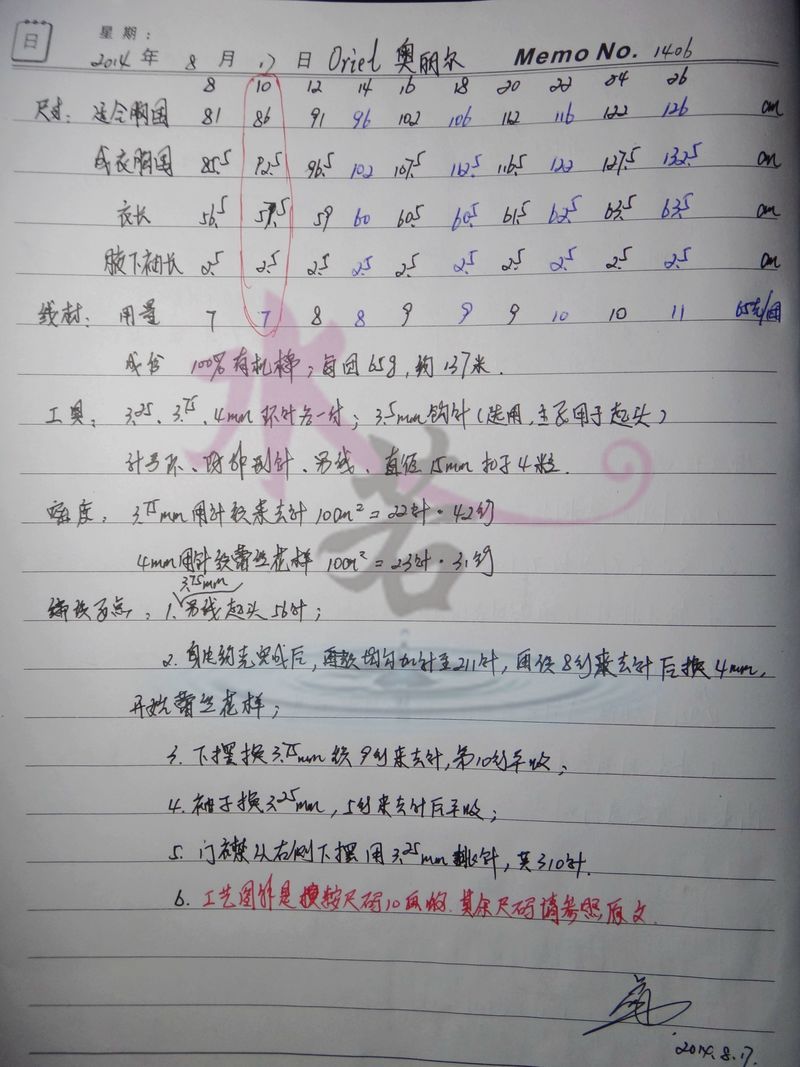 日
星期:
2014年 8月 17日 Oriel 奥丽尔 Memo No. 1406
8 10 12 14 16 18 20 22 24 26
尺寸: 适合胸围 81 86 91 96 102 106 112 116 122 126 cm
成衣胸围 85.5 92.5 96.5 102 107.5 112.5 116.5 122 127.5 132.5 cm
衣长 56.5 57.5 59 60 60.5 60.5 61.5 62.5 63.5 63.5 cm
腋下袖长 2.5 2.5 2.5 2.5 2.5 2.5 2.5 2.5 2.5 2.5 cm
线材: 用量 7 7 8 8 9 9 9 10 10 11 65克/团
成份 100%有机棉;每团65g,约137米.
工具: 3.25、3.75、4mm环针各一付;3.5mm钩针(选用,主要用于起头)
计号环、防卸别针、另线、直径15mm扣子4粒.
密度: 3.75mm用针织来去针 10cm²=22针·42行
4mm用针织蕾丝花样 10cm²=23针·31行
3.75mm
编织要点: 1.另线起头56针;
2.育克完成后,均匀加针至211针,再织8行来去针后换4mm,
开始蕾丝花样;
3.下摆换3.75mm织9行来去针,第10行平收;
4.袖子换3.25mm,5行来去针后平收;
5.门襟从右侧下摆用3.25mm挑针,共310针.
6.工艺图解是按尺码10画的.其余尺码请参照原文.
2014.8.17.
水若